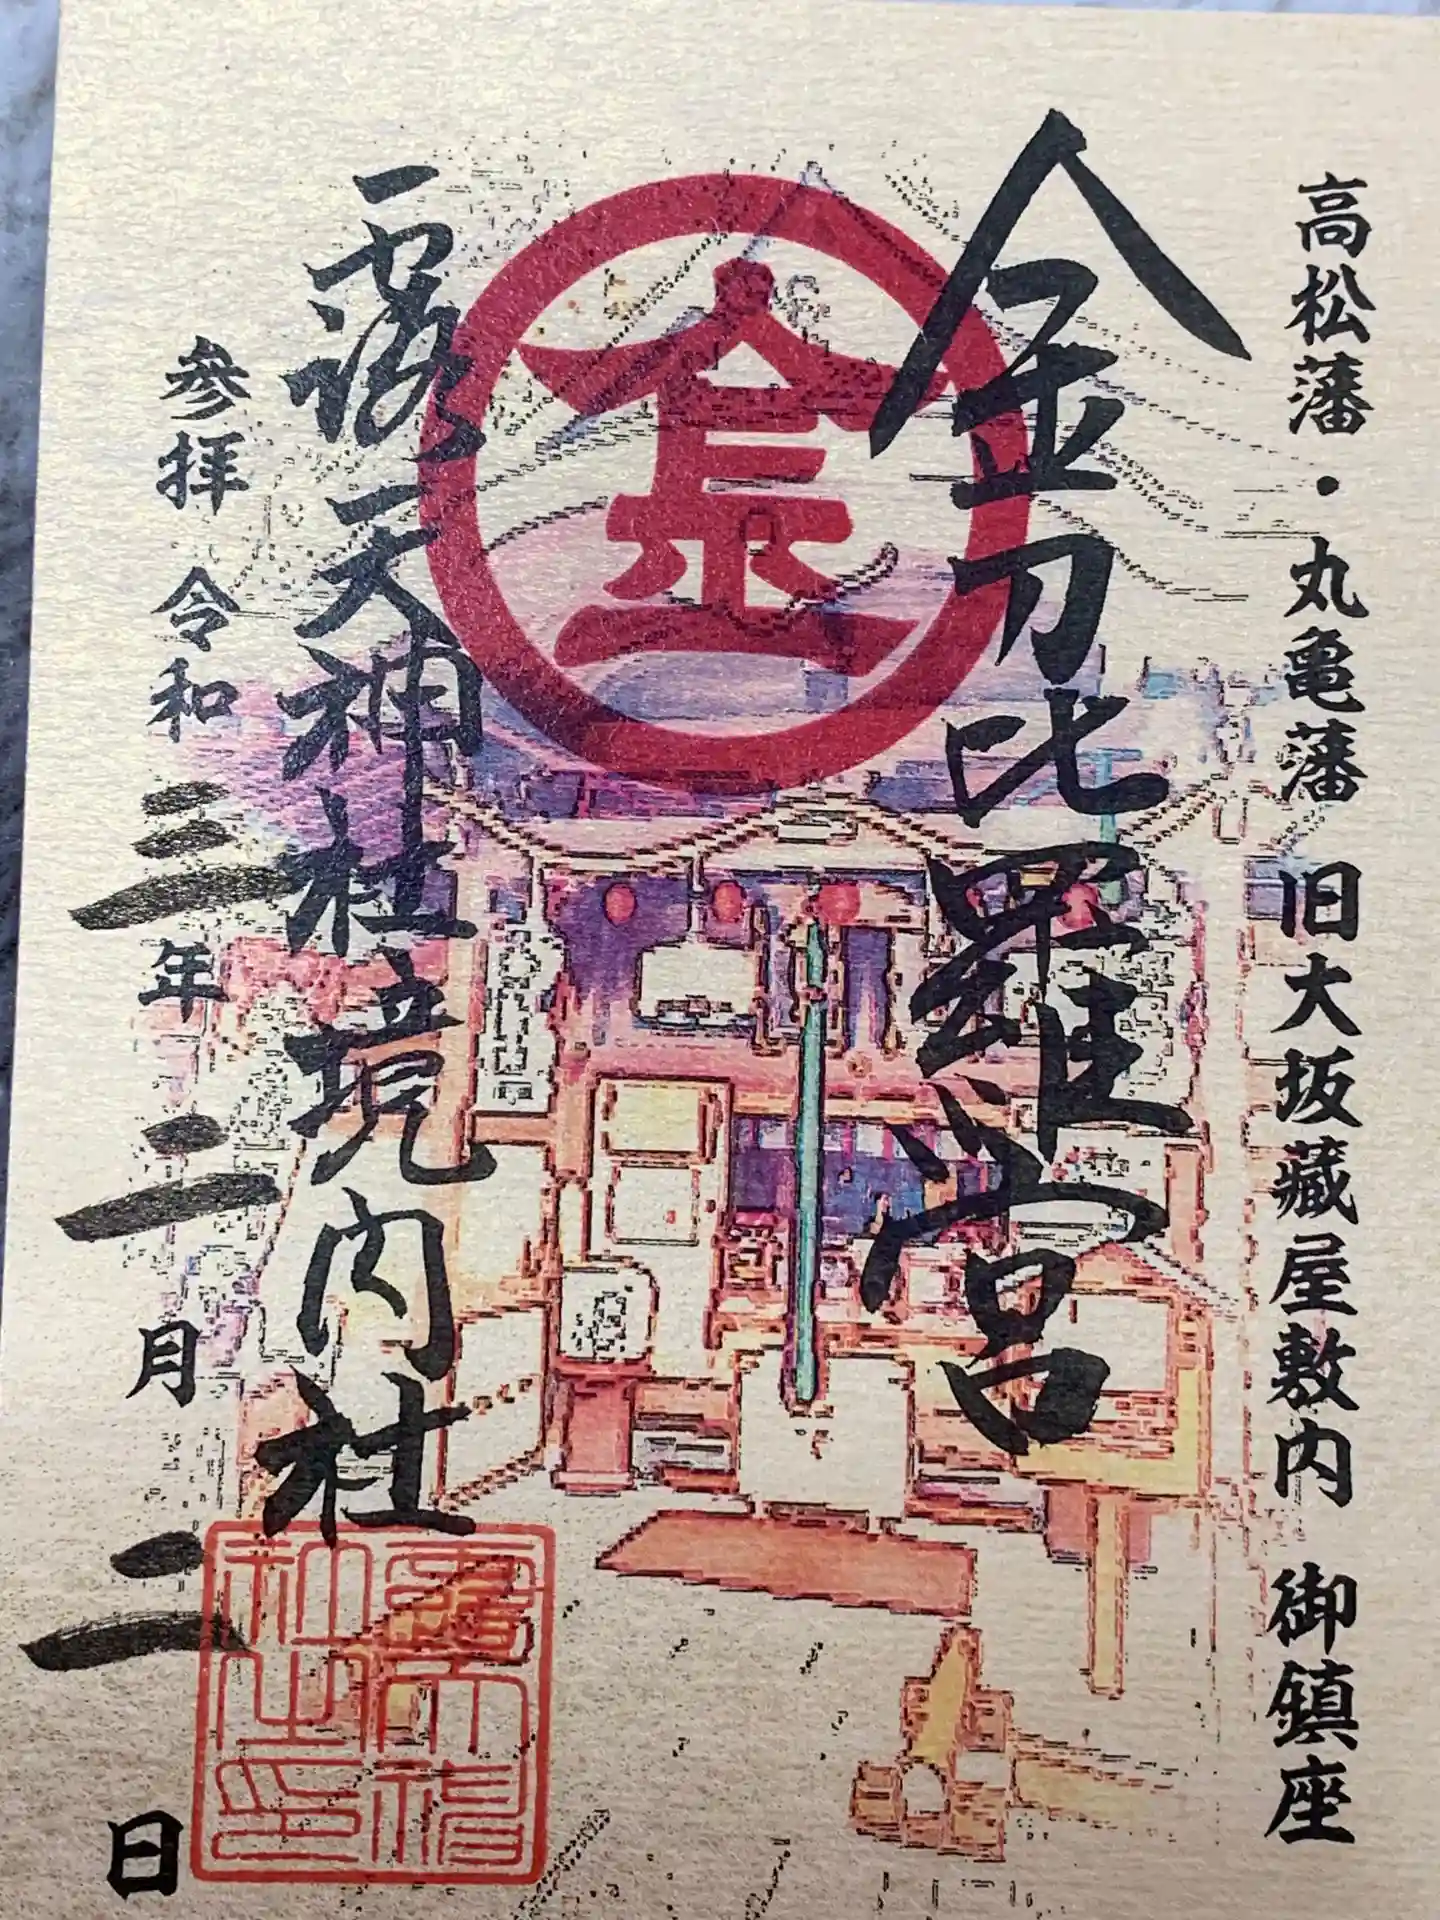 高松藩・丸亀藩 旧大坂藏屋敷内 御鎮座
金刀比羅宮
金
露天神社境内社
参拝 令和三年二月二日
露天神社之印